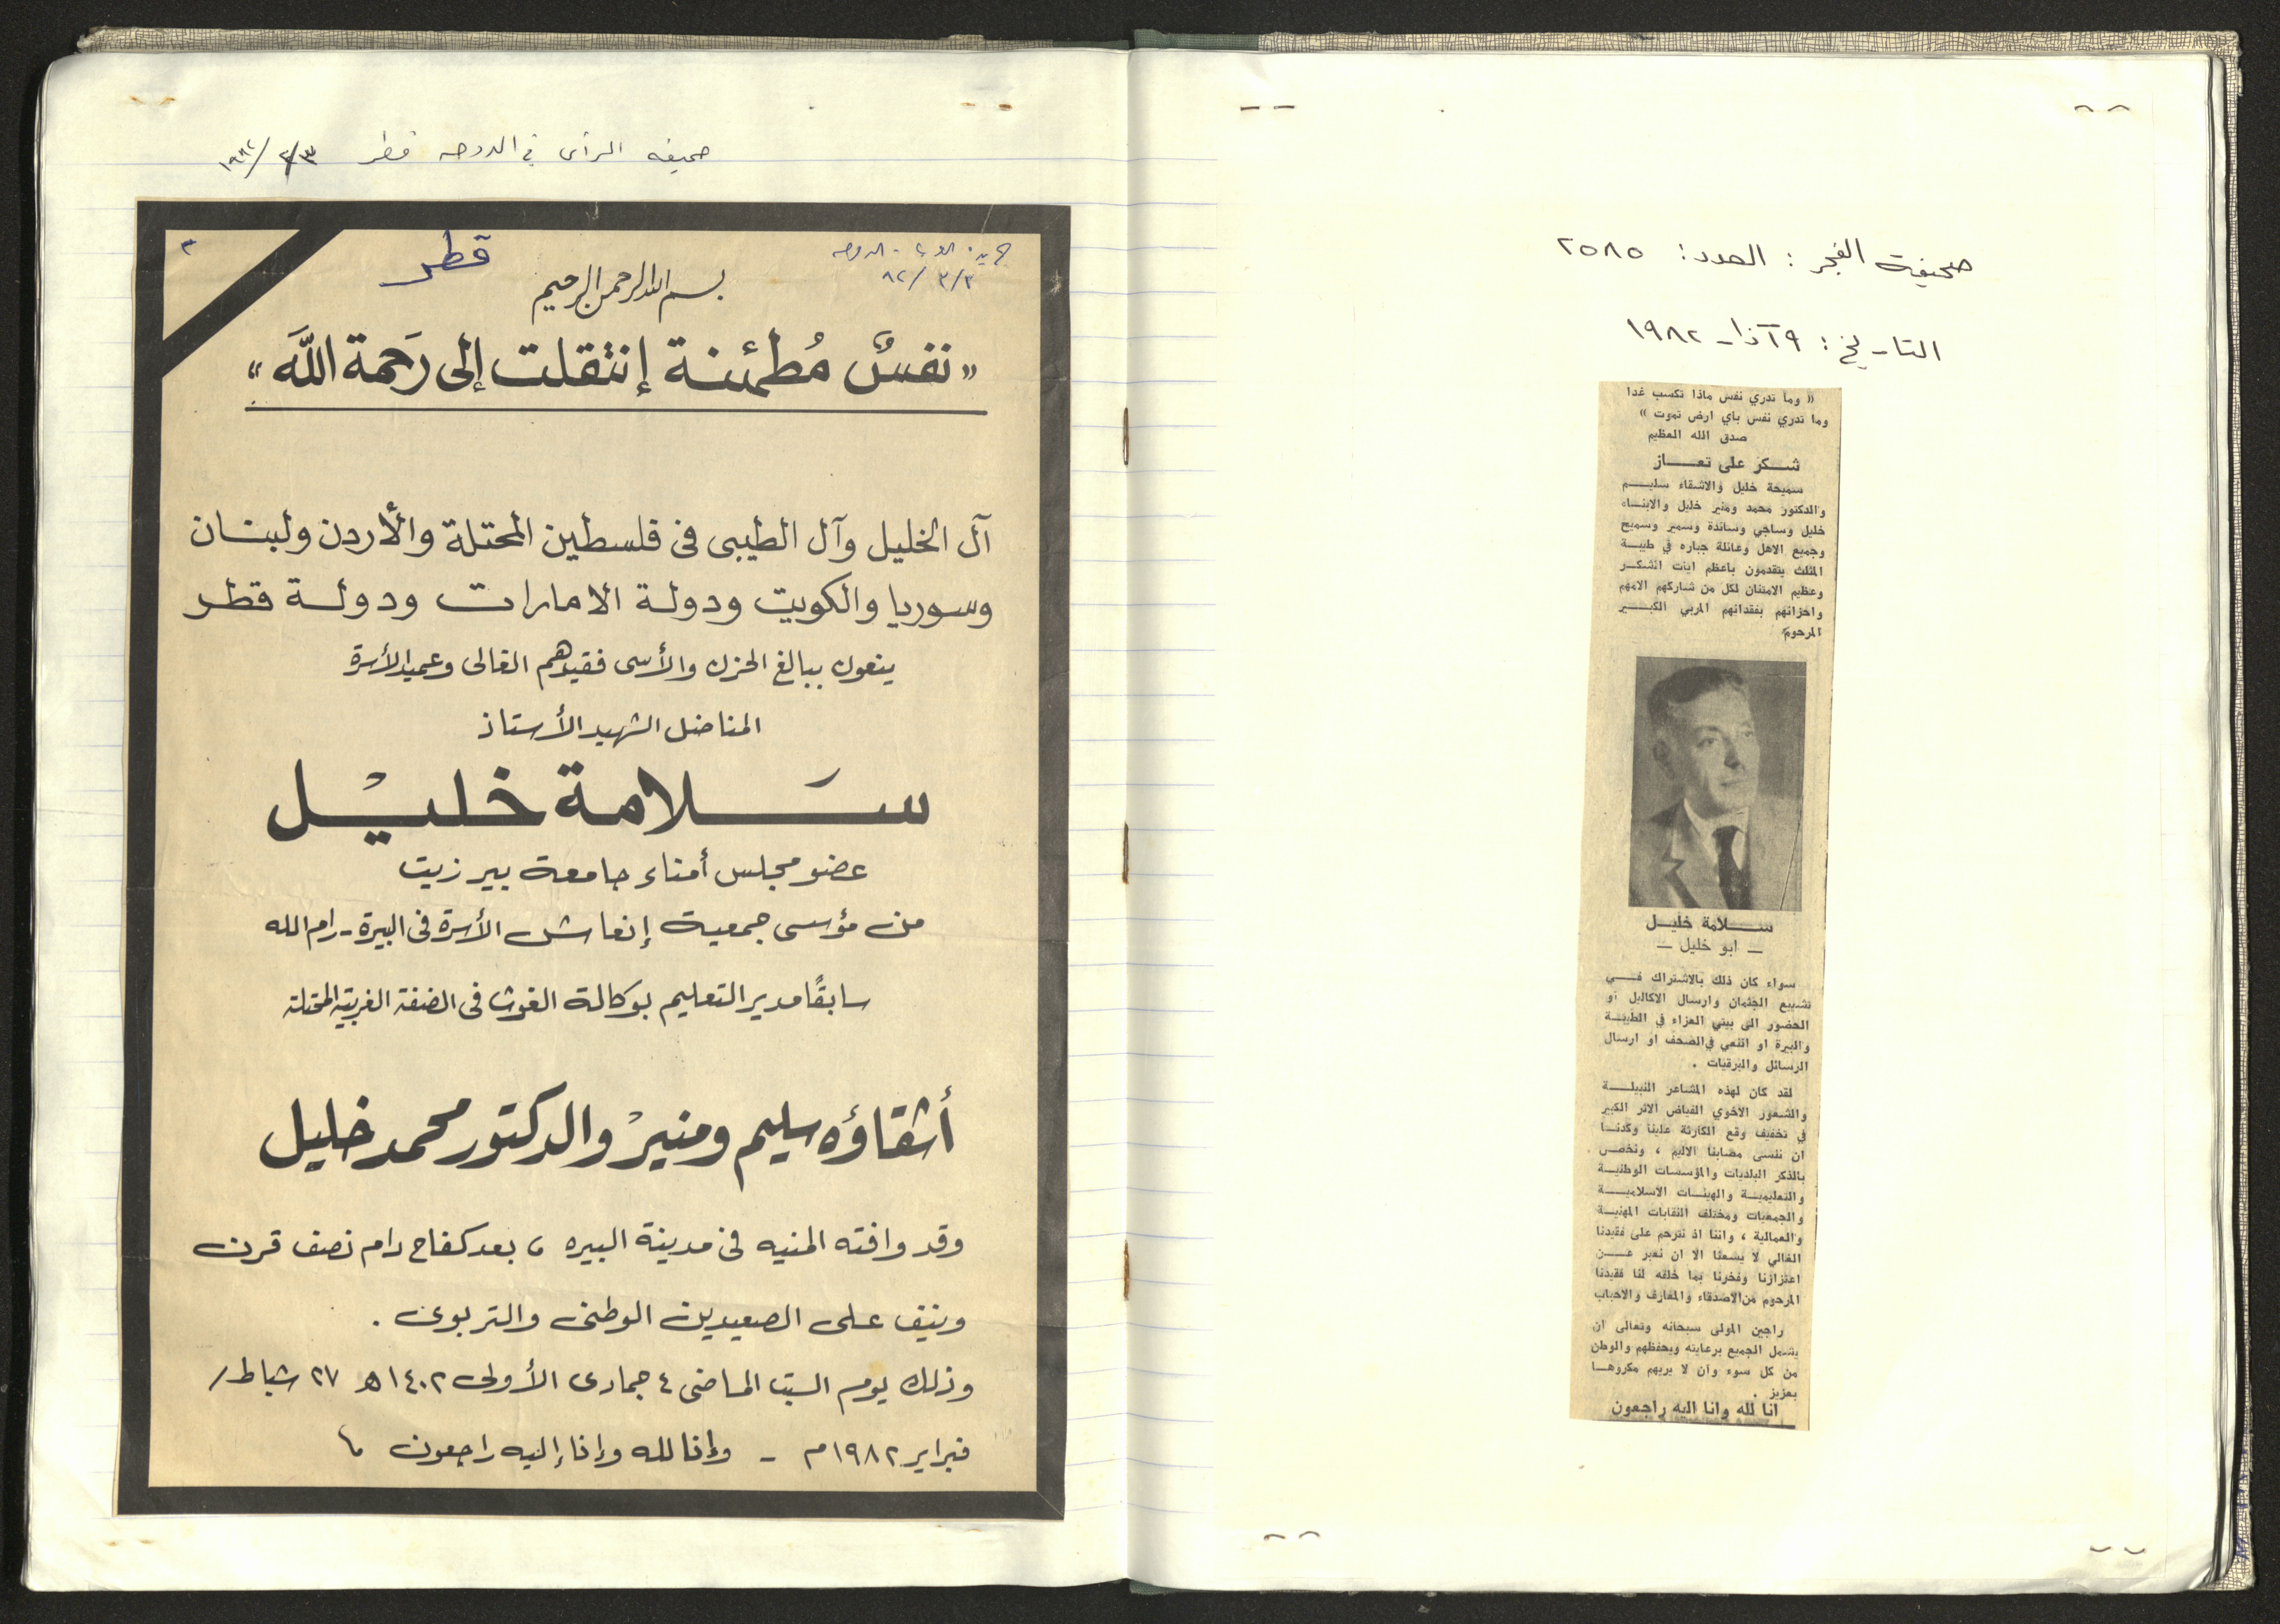 صحيفه الرأى في الدوحه قطر ٣/٣/١٩٨٢
٣
قطر
الدوحه
٣/٣/٨٢
بسم الله الرحمن الرحيم
«نفسٌ مُطمئنة إنتقلت إلى رَحمة اللَّه»
آل الخليل وآل الطيبى فى فلسطين المحتلة والأردن ولبنان
وسوريا والكويت ودولة الامارات ودولة قطر
ينعون ببالغ الحزن والأسى فقيدهم الغالى وعميد الأسرة
المناضل الشهيد الأستاذ
سَلامة خليْل
عضو مجلس أمناء جامعة بير زيت
من مؤسسى جمعية إنعاش الأسرة فى البيرة - رام الله
سابقًا مدير التعليم بوكالة الغوث فى الضفة الغربية المحتلة
أشقاؤه سليم ومنيرْ والدكتور محمد خليل
وقد وافته المنيه فى مدينة البيره ، بعد كفاح دام نصف قرن
ونيف على الصعيدين الوطنى والتربوى .
وذلك يوم السبت الماضى ٤ جمادى الأولى ١٤٠٢ هـ ٢٧ شباط/
فبراير ١٩٨٢م - وإنا لله وإنا إليه راجعون
صحيفة الفجر : العدد : ٢٥٨٥
التاريخ : ٩ آذار ١٩٨٢
« وما تدري نفس ماذا تكسب غدا
وما تدري نفس باي ارض تموت »
صدق الله العظيم
شكر على تعاز
سميحة خليل والاشقاء سليم
والدكتور محمد ومنير خليل والابناء
خليل وساجي وسائدة وسمير وسميح
وجميع الاهل وعائلة جباره في طيبة
المثلث يتقدمون باعظم ايات الشكر
وعظيم الامتنان لكل من شاركهم الامهم
واحزانهم بفقدانهم المربي الكبير
المرحوم
سلامة خليل
— ابو خليل —
سواء كان ذلك بالاشتراك في
تشييع الجثمان وارسال الاكاليل او
الحضور الى بيتي العزاء في الطيبة
والبيرة او النعي في الصحف او ارسال
الرسائل والبرقيات .
لقد كان لهذه المشاعر النبيلة
والشعور الاخوي الفياض الاثر الكبير
في تخفيف وقع الكارثة علينا وكدنا
ان ننسى مصابنا الاليم ، ونخص
بالذكر البلديات والمؤسسات الوطنية
والتعليمية والهيئات الاسلامية
والجمعيات ومختلف النقابات المهنية
والعمالية ، واننا اذ نترحم على فقيدنا
الغالي لا يسعنا الا ان نعبر عن
اعتزازنا وفخرنا بما خلفه لنا فقيدنا
المرحوم من الاصدقاء والمعارف والاحباب
راجين المولى سبحانه وتعالى ان
يشمل الجميع برعايته ويحفظهم والوطن
من كل سوء وان لا يريهم مكروها
بعزيز .
انا لله وانا اليه راجعون